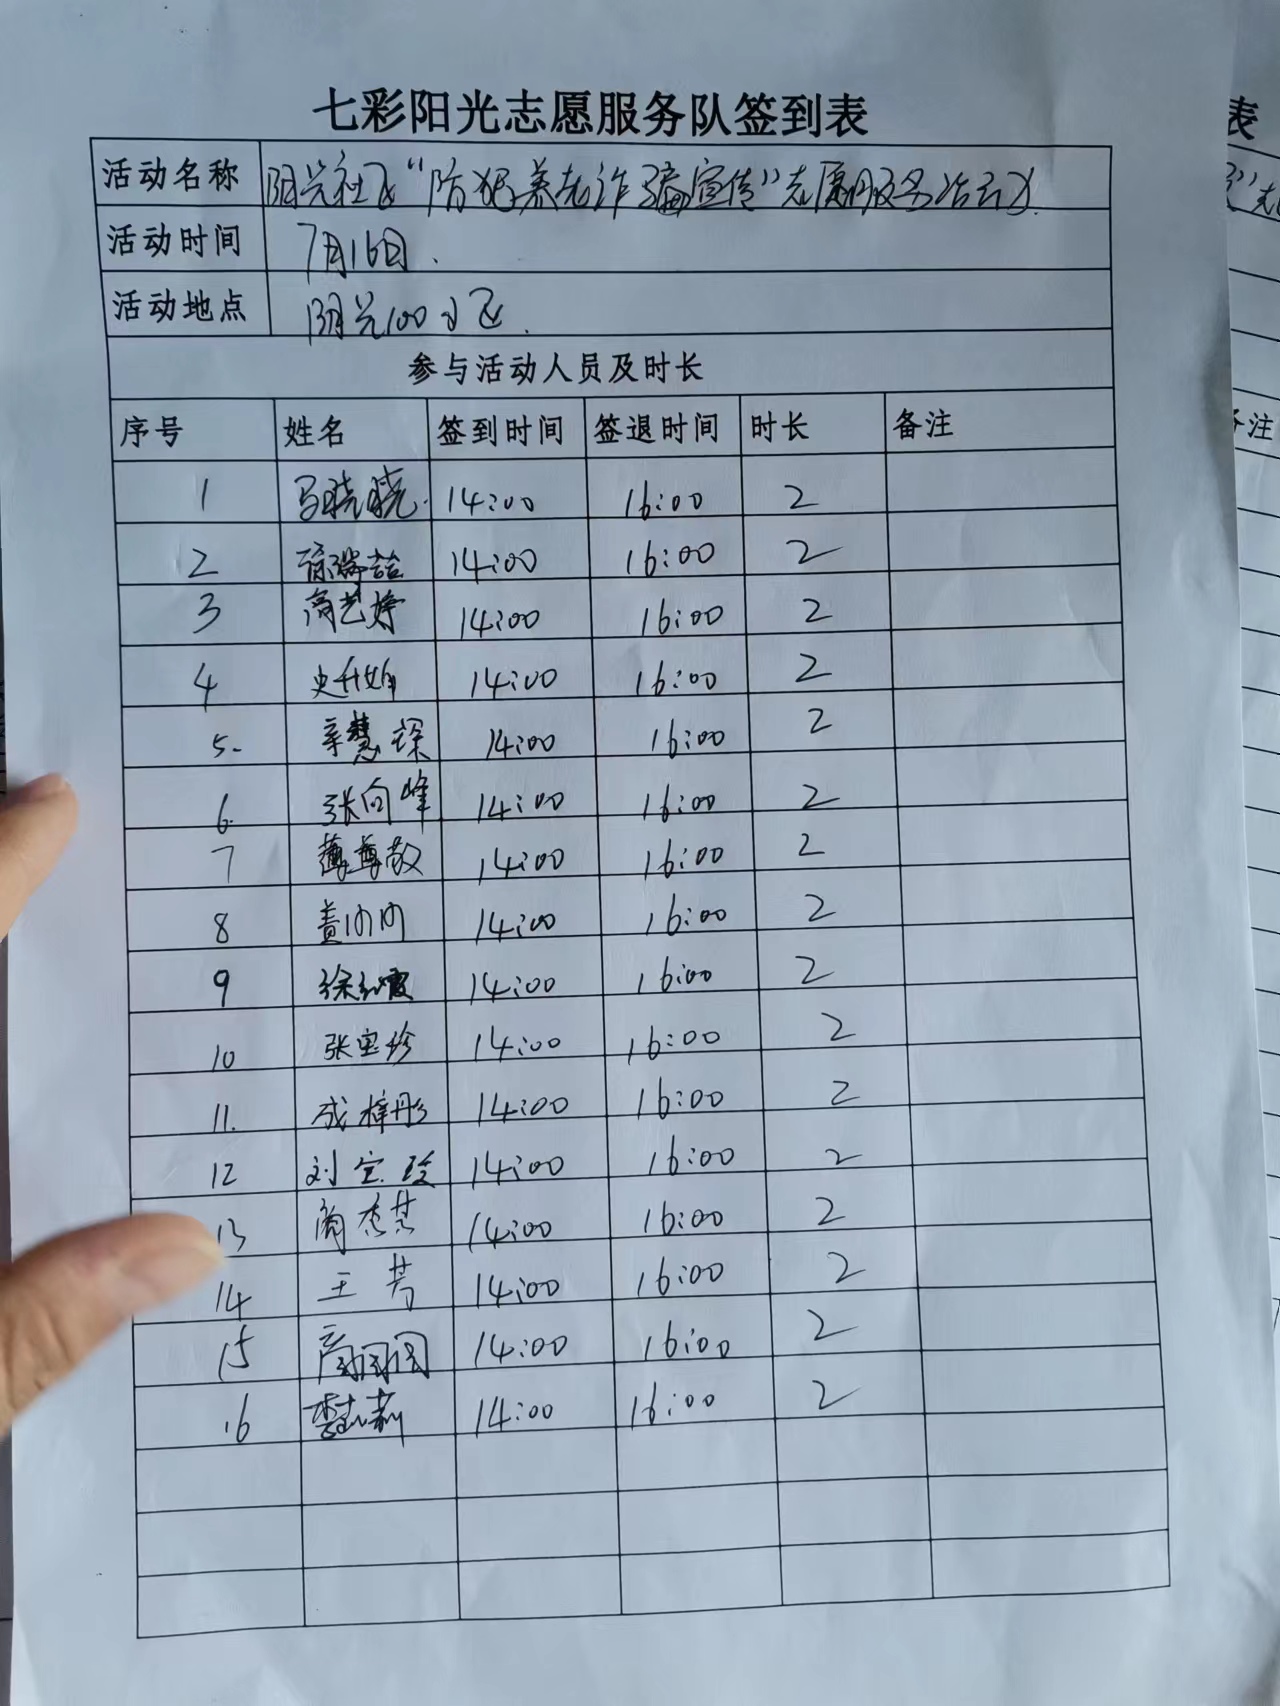 七彩阳光志愿服务队签到表
活动名称 阳光社区“防范养老诈骗宣传”志愿服务活动
活动时间 7月16日.
活动地点 阳光100小区.
参与活动人员及时长
序号 姓名 签到时间 签退时间 时长 备注
1 马晓晓 14:00 16:00 2
2 徐瑞喆 14:00 16:00 2
3 商艺婷 14:00 16:00 2
4 史 14:00 16:00 2
5. 辛慧琛 14:00 16:00 2
6. 张向峰 14:00 16:00 2
7 薄尊敬 14:00 16:00 2
8 14:00 16:00 2
9 徐红霞 14:00 16:00 2
10 张宝珍 14:00 16:00 2
11. 成梓彤 14:00 16:00 2
12 刘宝玲 14:00 16:00 2
13 14:00 16:00 2
14 王芳 14:00 16:00 2
15 商园园 14:00 16:00 2
16 李志莉 14:00 16:00 2
表
注